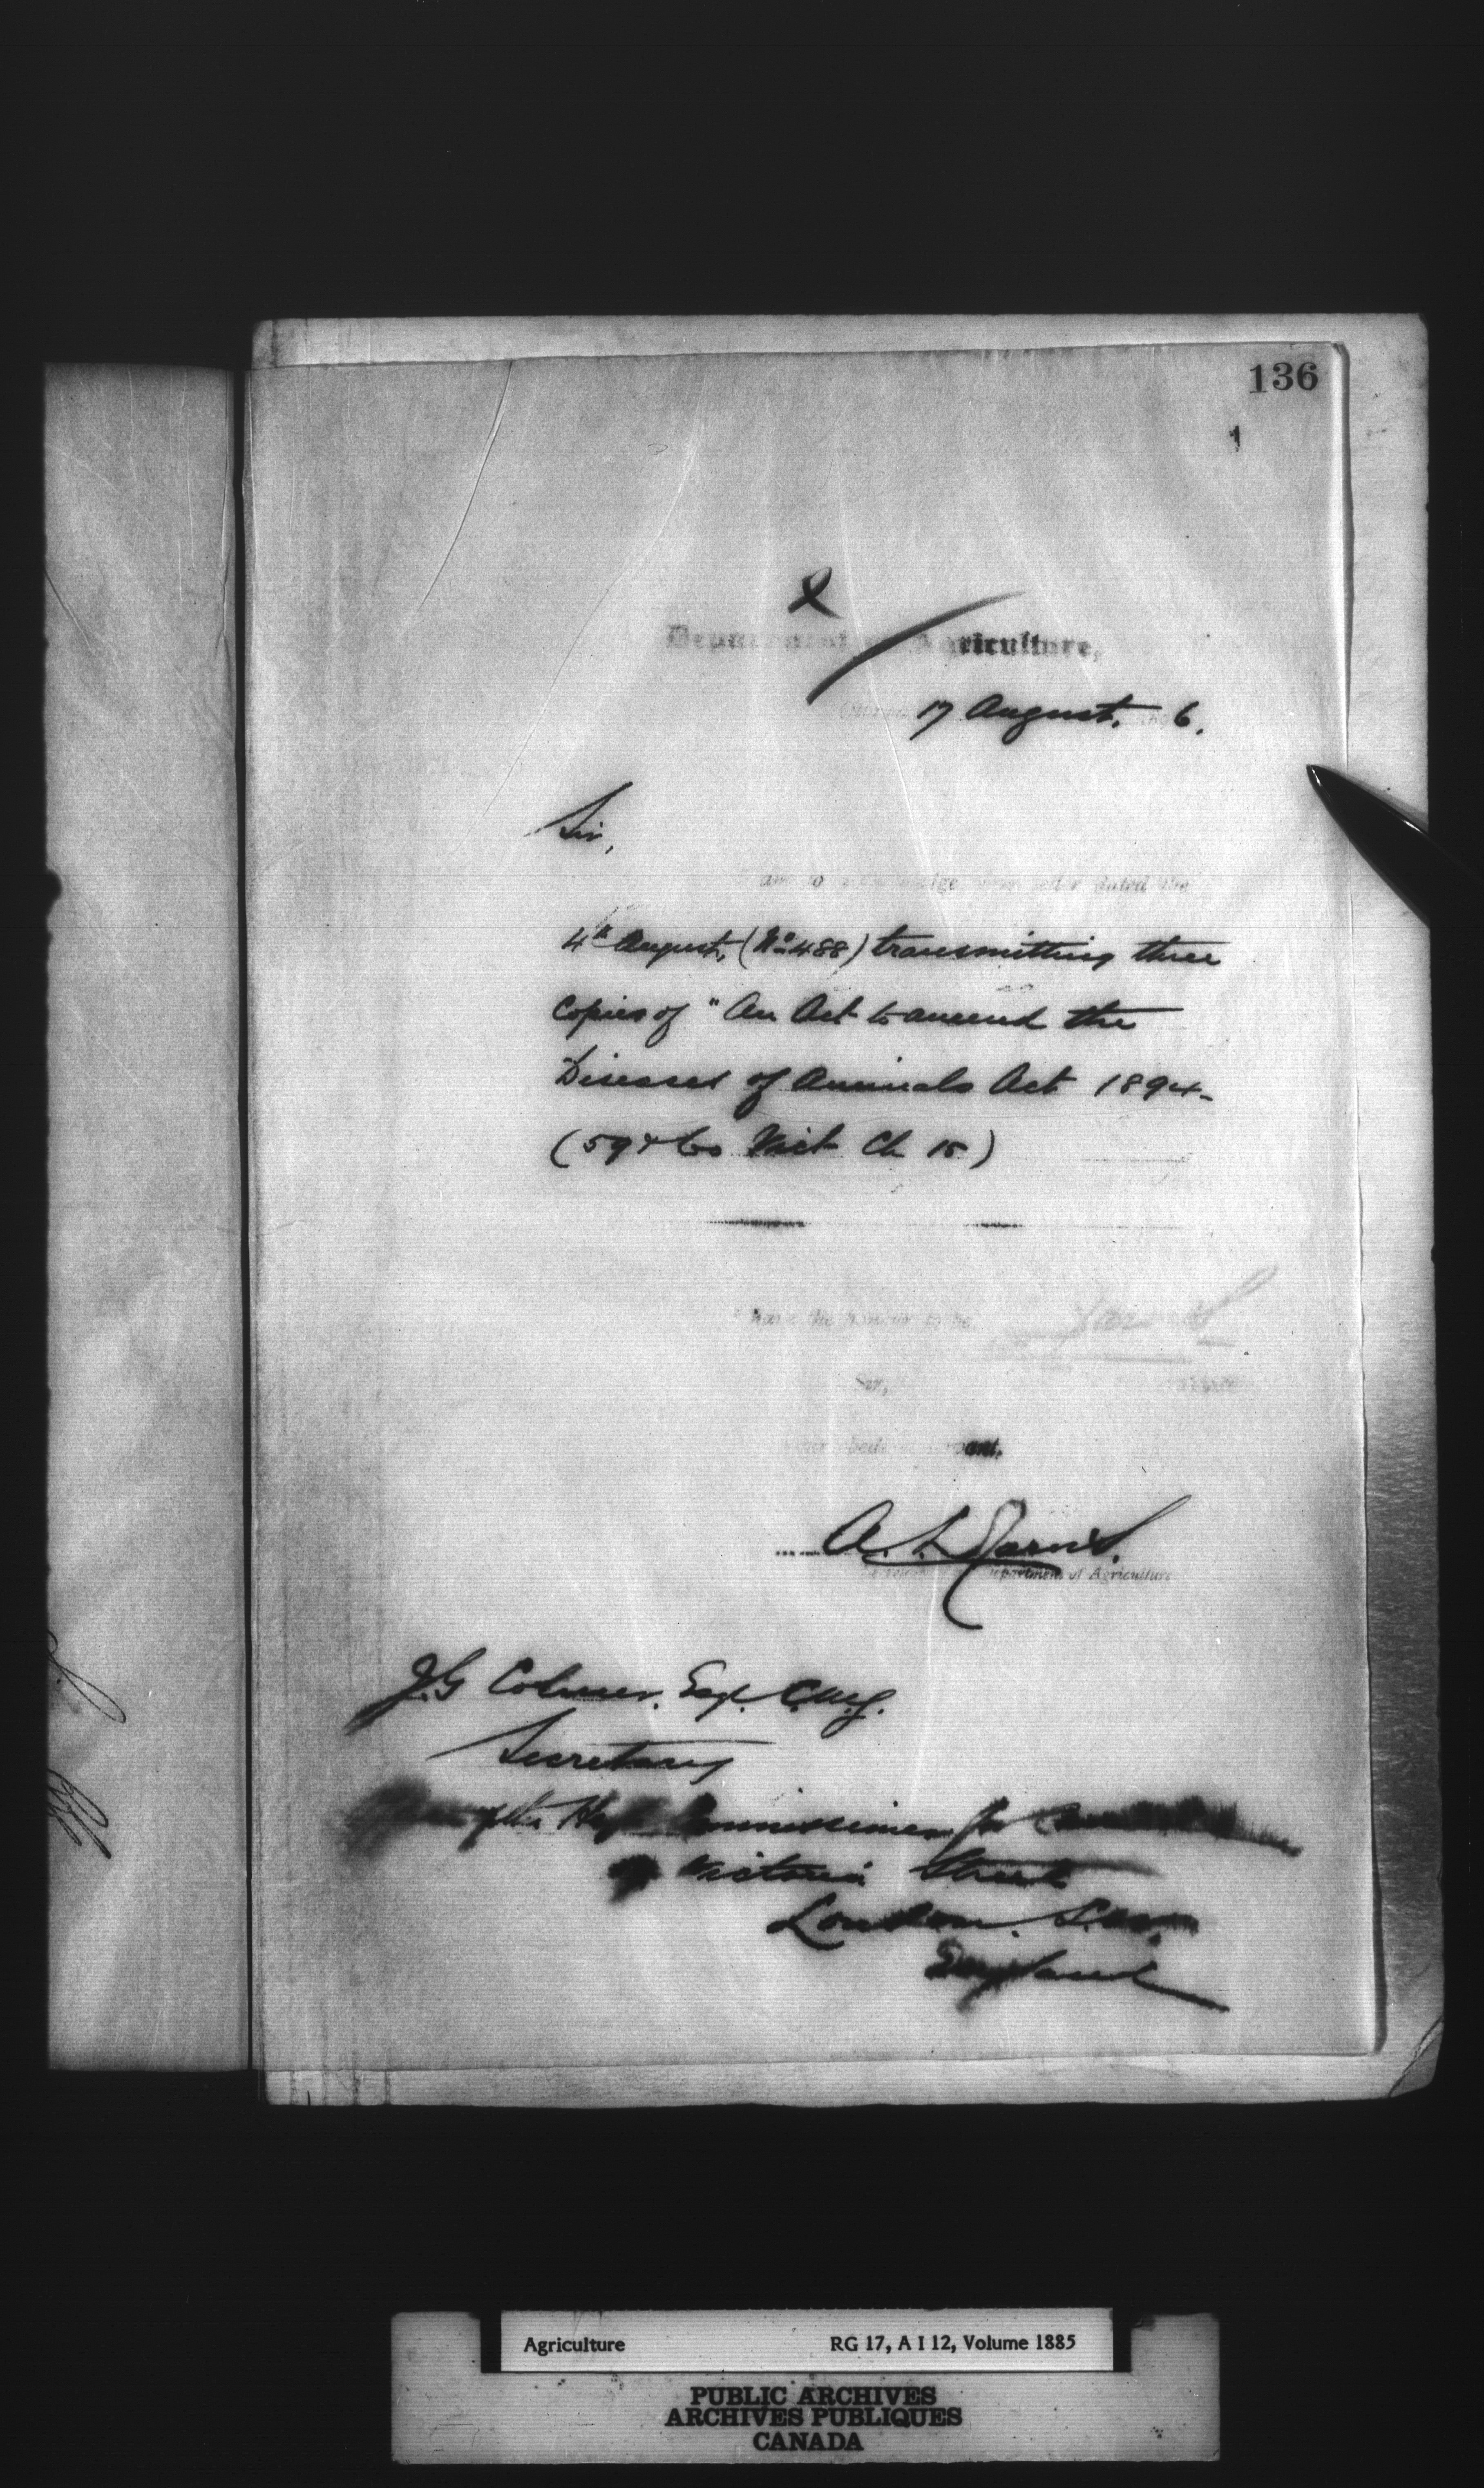 136
1
Department of Agriculture,
17 August. 6.
Sir,
I am to acknowledge your letter dated the
4th August, (No 488) transmitting three
Copies of "An Act to amend the
Diseases of Animals Act 1894-
(59 & 60 Vict Ch 15)
I have the honour to be,
Jarvis
Sir,
Your obedient servant,
A. L. Jarvis.
Department of Agriculture
J.G Colmer. Esq. C.M.G.
Secretary
of the High Commissioner for Canada
Victoria Street
London. S.W.
England
Agriculture RG 17, A I 12, Volume 1885
PUBLIC ARCHIVES
ARCHIVES PUBLIQUES
CANADA